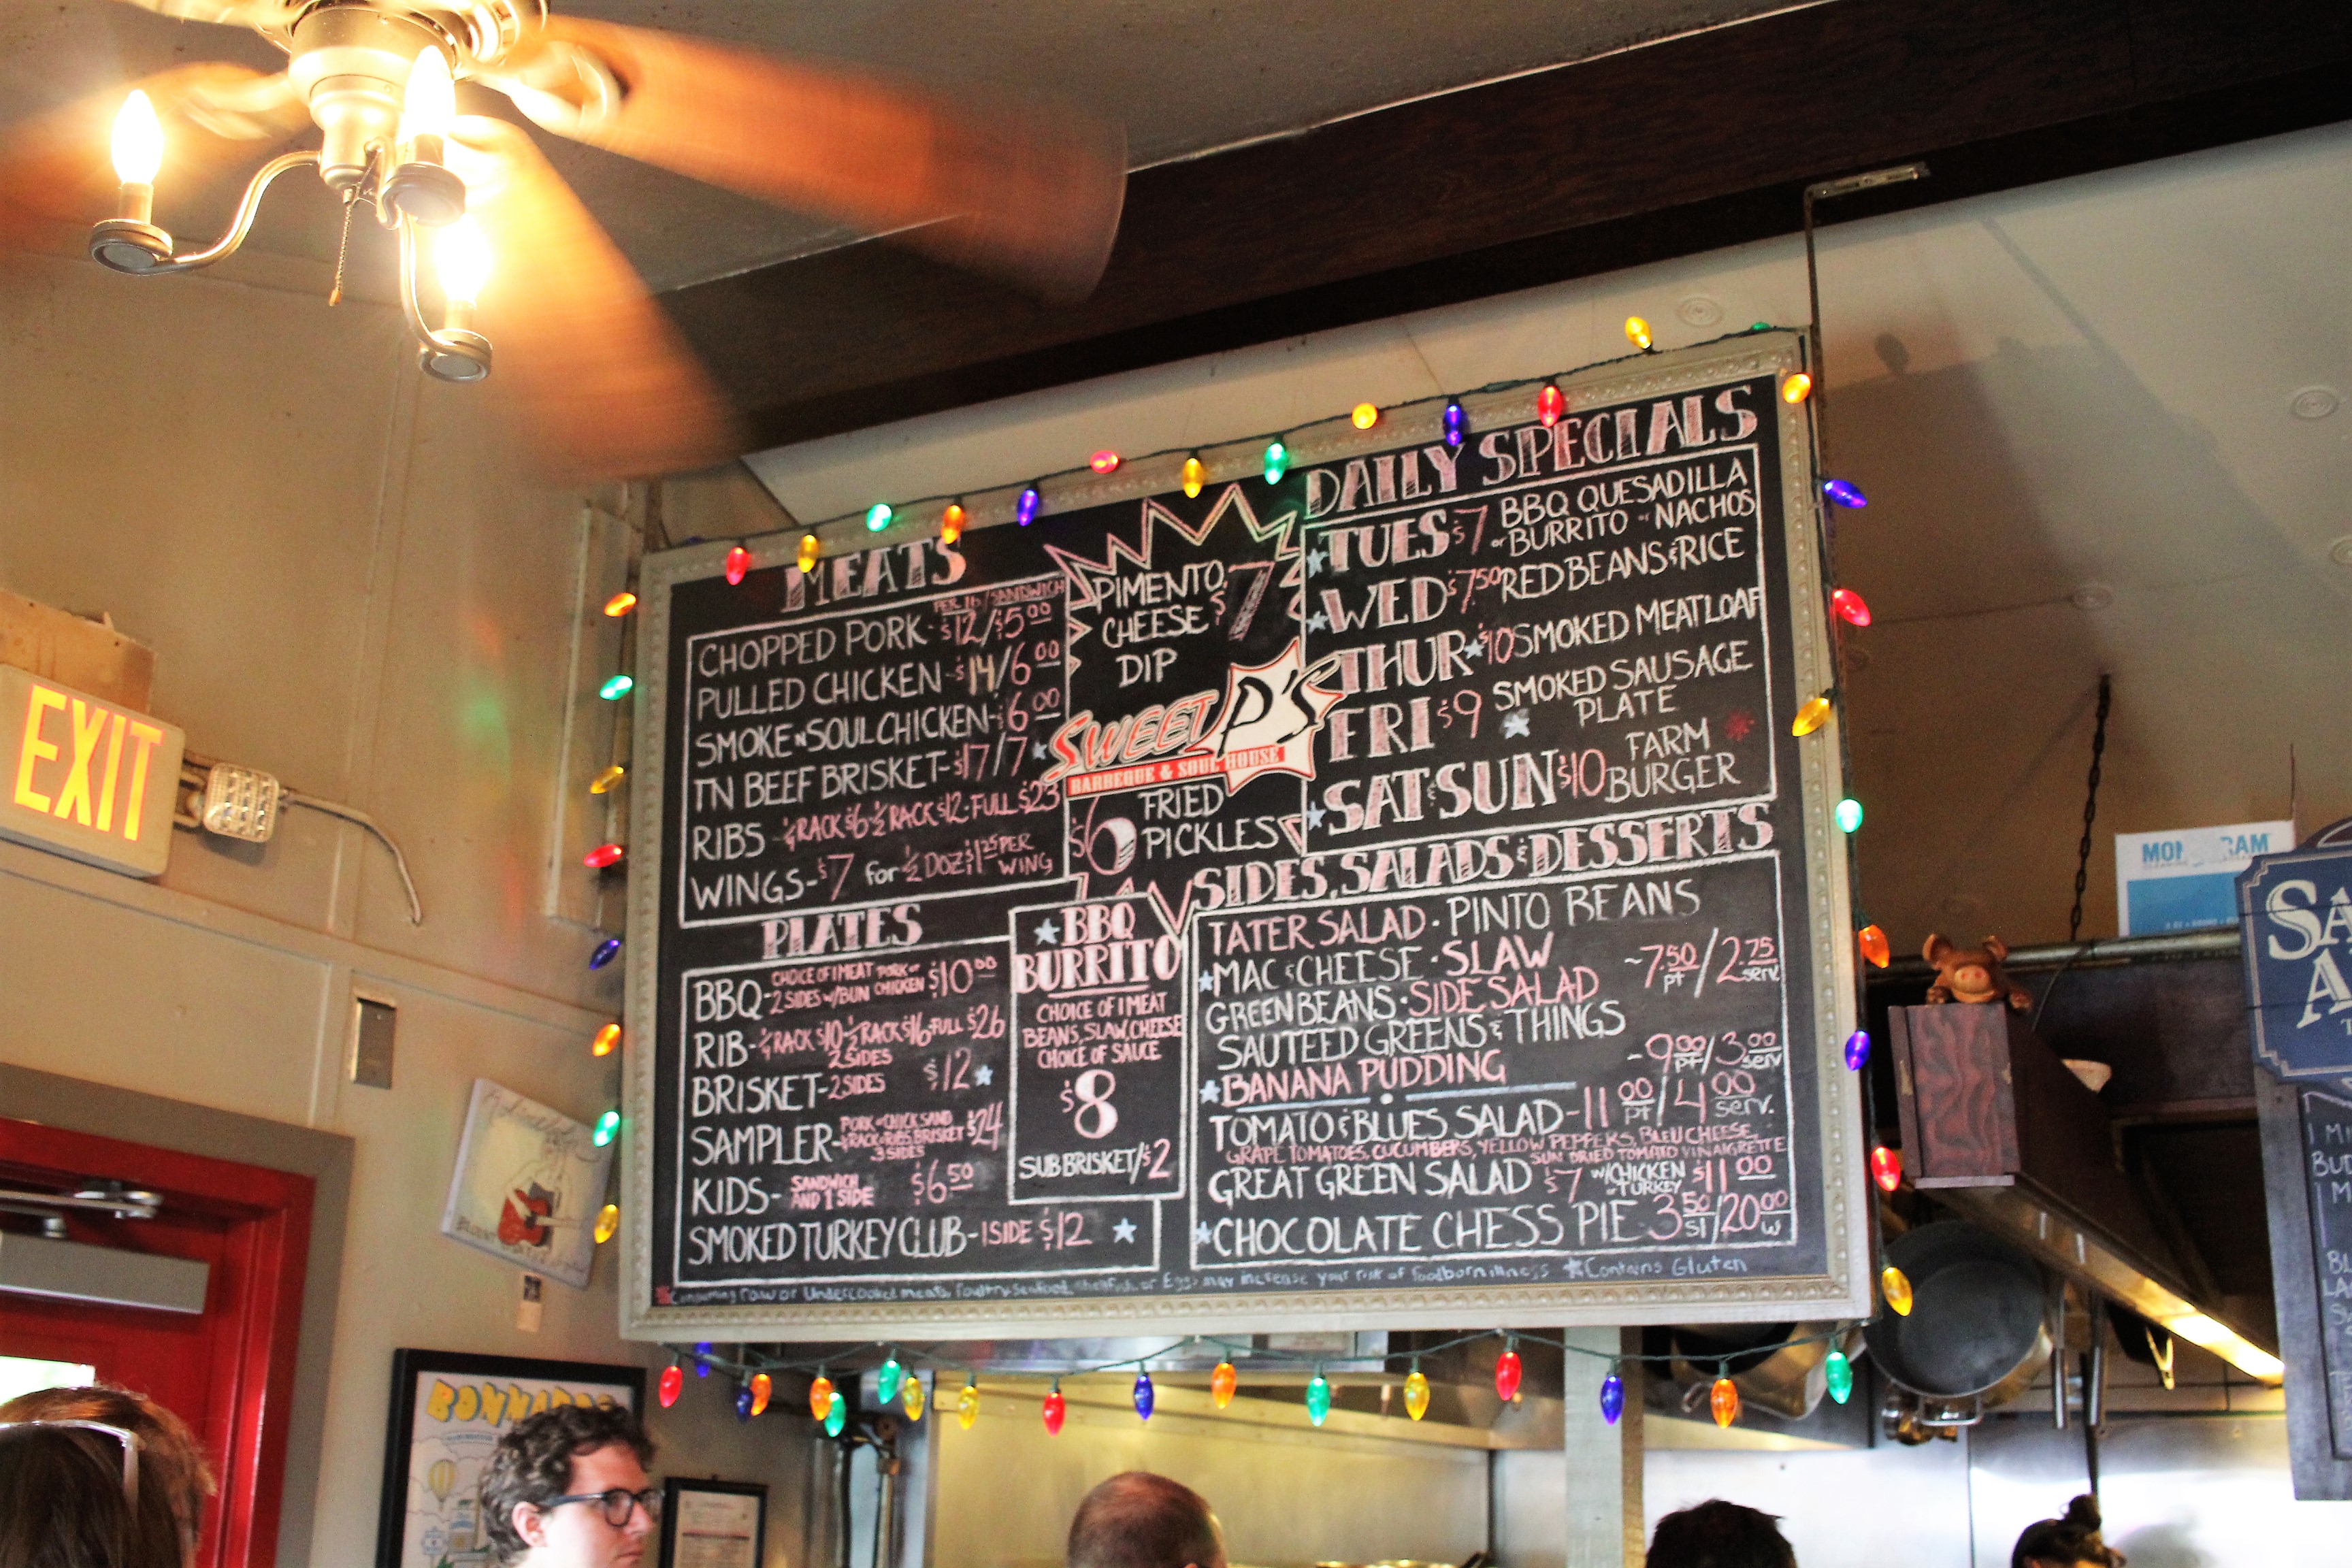 EXIT
MEATS
PER lb/SANDWICH
CHOPPED PORK - $12/$5.00
PULLED CHICKEN - $14/6.00
SMOKE N SOUL CHICKEN - $6.00
TN BEEF BRISKET - $17/7
RIBS - 1/4 RACK $6 - 1/2 RACK $12 - FULL $23
WINGS - $7 for 1/2 DOZ $1.25 PER WING
PIMENTO
CHEESE $7
DIP
SWEET P'S
BARBEQUE & SOUL HOUSE
$6 FRIED
PICKLES
DAILY SPECIALS
TUES $7 BBQ QUESADILLA
or BURRITO or NACHOS
WED $7.50 RED BEANS & RICE
THUR $10 SMOKED MEATLOAF
FRI $9 SMOKED SAUSAGE
PLATE
SAT & SUN $10 FARM
BURGER
PLATES
BBQ - CHOICE OF 1 MEAT PORK or CHICKEN
2 SIDES w/BUN $10.00
RIB - 1/4 RACK $10 - 1/2 RACK $16 - FULL $26
2 SIDES
BRISKET - 2 SIDES $12
SAMPLER - PORK or CHICK SAND
1/4 RACK RIBS BRISKET $24
3 SIDES
KIDS - SANDWICH
AND 1 SIDE $6.50
SMOKED TURKEY CLUB - 1 SIDE $12
BBQ
BURRITO
CHOICE OF 1 MEAT
BEANS, SLAW, CHEESE
CHOICE OF SAUCE
$8
SUB BRISKET/$2
SIDES, SALADS & DESSERTS
TATER SALAD · PINTO BEANS
MAC & CHEESE · SLAW ~7.50 pt/2.75 serv.
GREEN BEANS · SIDE SALAD
SAUTEED GREENS & THINGS
BANANA PUDDING ~9.00 pt/3.00 serv
TOMATO & BLUES SALAD - 11.00 pt/4.00 serv.
GRAPE TOMATOES, CUCUMBERS, YELLOW PEPPERS, BLEU CHEESE,
SUN DRIED TOMATO VINAIGRETTE
GREAT GREEN SALAD $7 W/CHICKEN or TURKEY $11.00
CHOCOLATE CHESS PIE 3.50 sl/20.00 w
Consuming raw or Undercooked meats, Poultry, Seafood, Shellfish, or Eggs may increase your risk of foodborn illness *Contains Gluten
BONNAROO